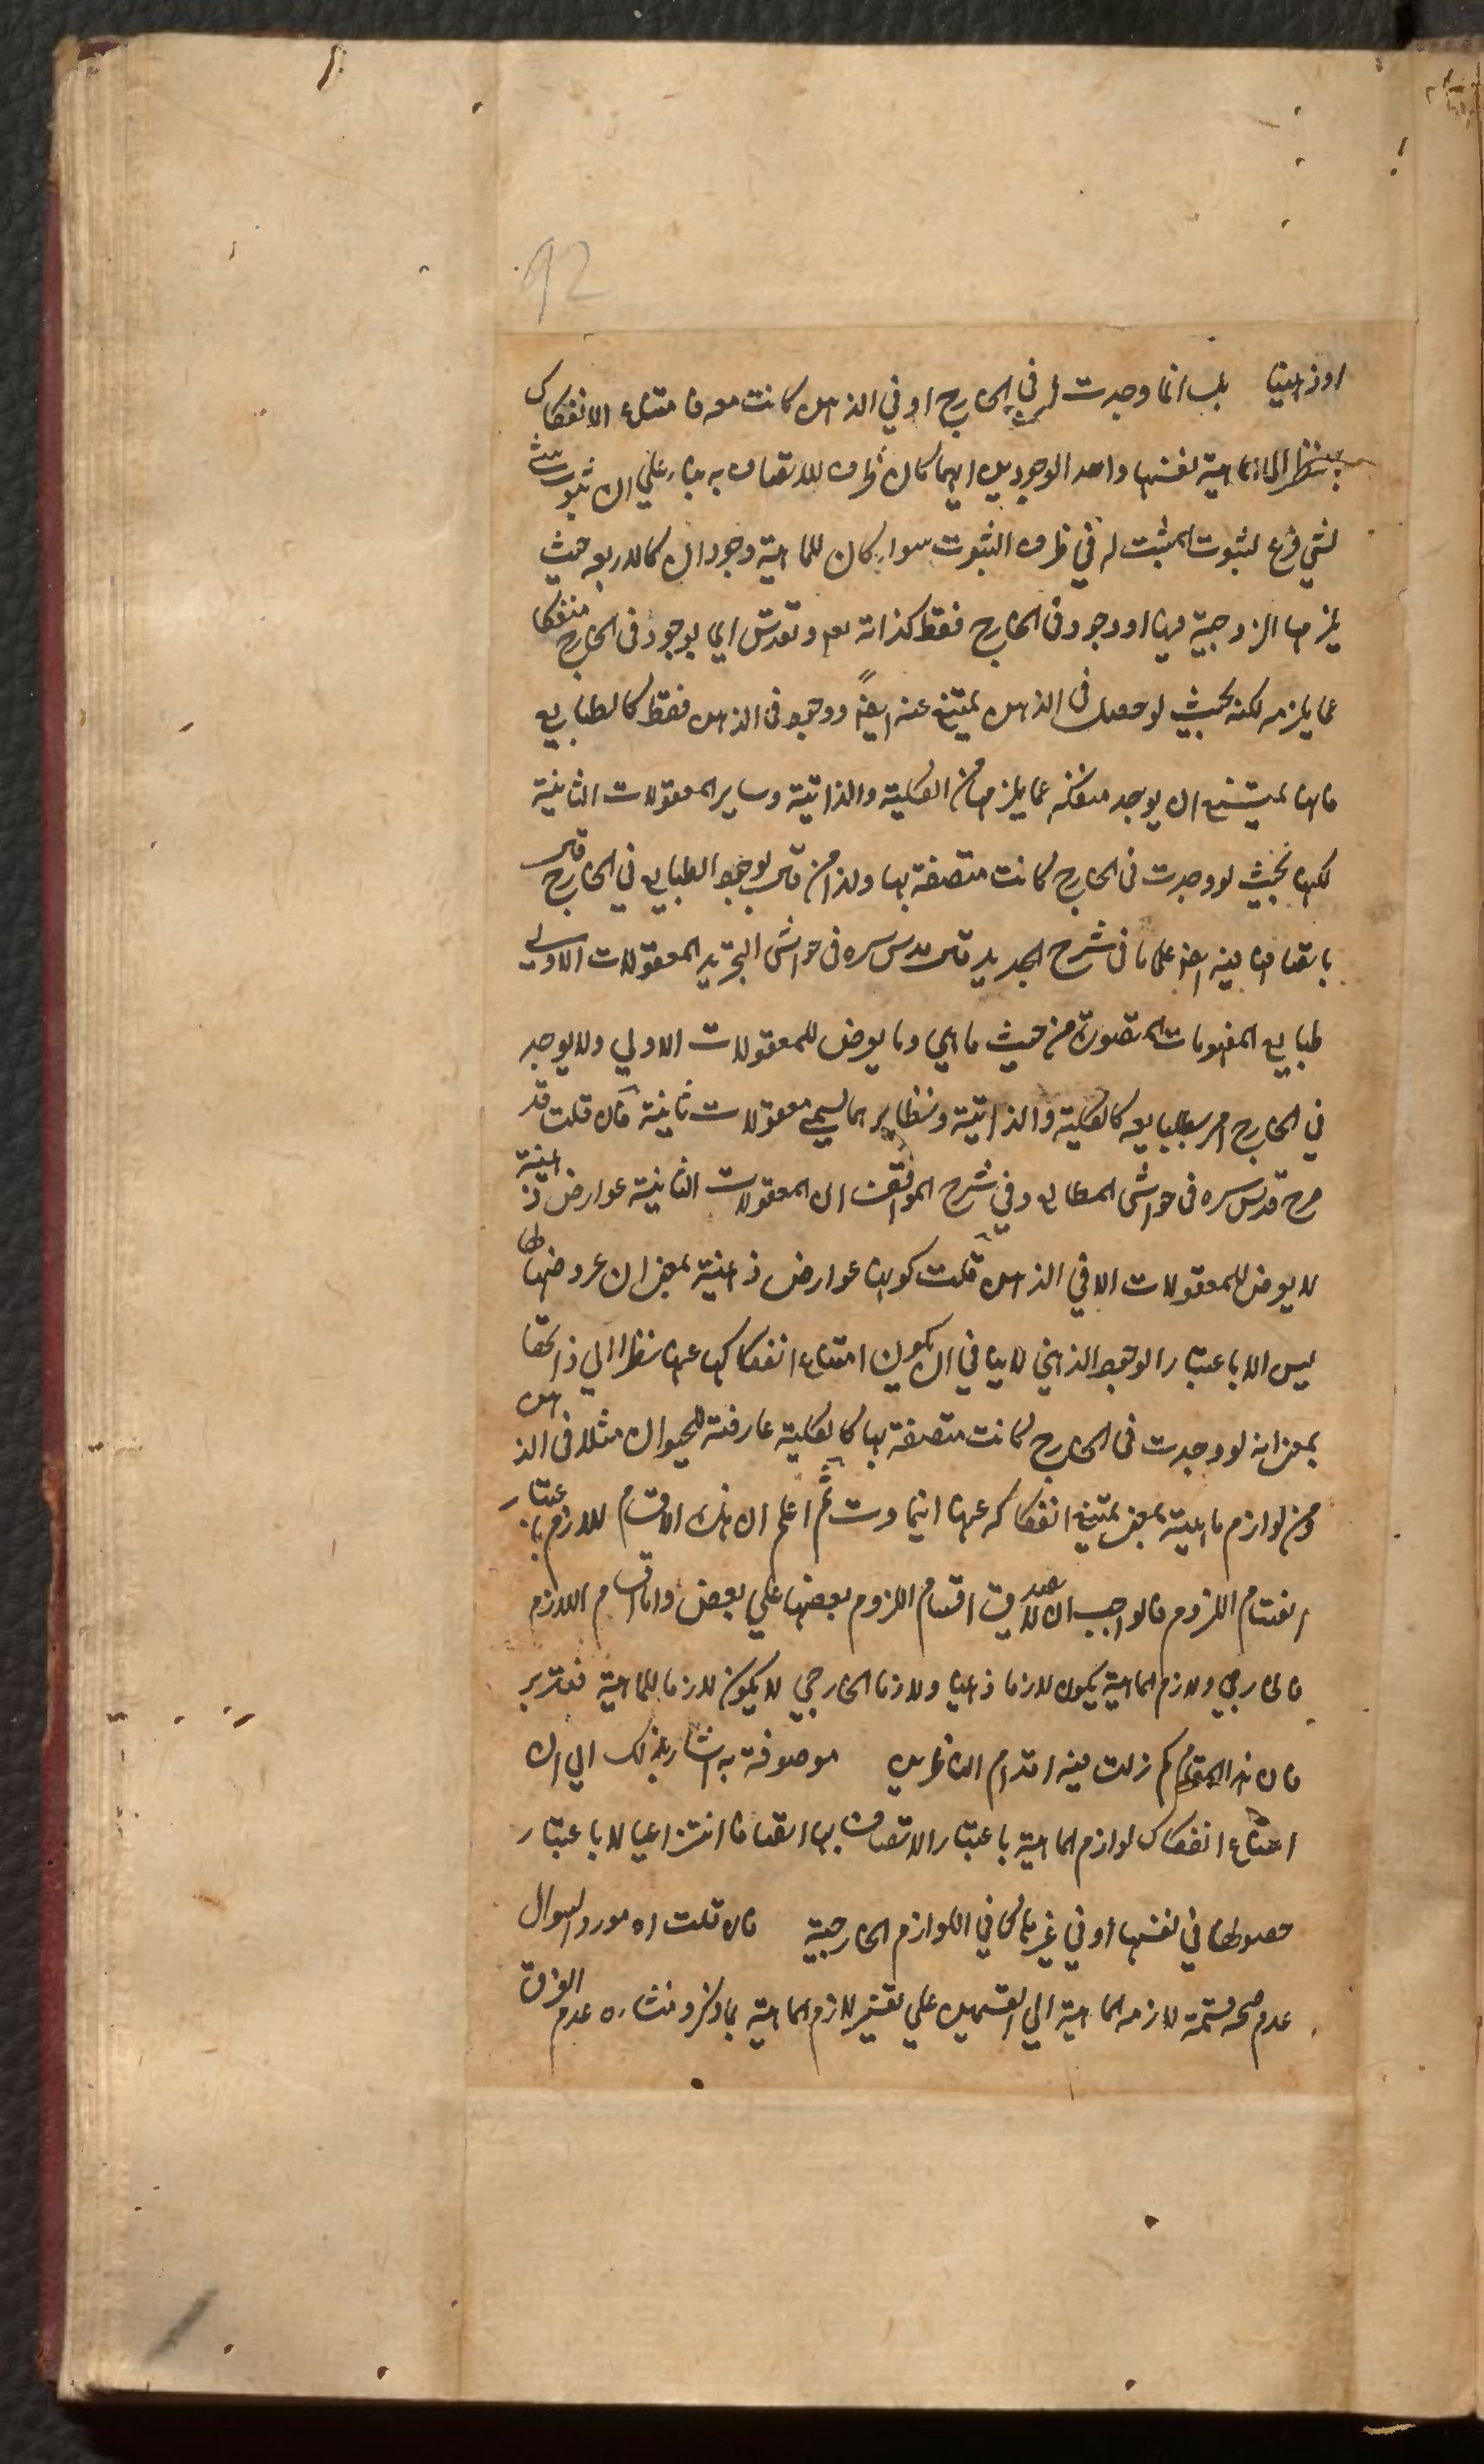 92
او ذهنيا بل انما وجدت في الخارج او في الذهن كانت معه فامتناع الانفكاك
بنظر الى الماهية نفسها واحد الوجودين ايهما كان ظرف للاتصاف به بناء على ان ثبوت شئ
لشئ فرع لثبوت المثبت له في ظرف الثبوت سواء كان للماهية وجودان كالاربعة حيث
يلزمها الزوجية فيهما او وجود في الخارج فقط كذاته تعالى وتقدس اى يوجد في الخارج منفكا
عما يلزمه لكنه بحيث لو حصل في الذهن يمتنع عنه ايضا او وجود في الذهن فقط كالطبايع
فانها يمتنع ان يوجد منفكة عما يلزمها من الكلية والذاتية وساير المعقولات الثانية
لكنها بحيث لو وجدت في الخارج كانت متصفة بها ولذا من قال بوجود الطبايع في الخارج قال
باتصافها فيه ايضا على ما في شرح الجديد قال قدس سره في حواشى التجريد المعقولات الاولى
طبايع المفهومات المتصورة من حيث ما هي وما يعرض للمعقولات الاولي ولا يوجد
في الخارج امر يطابقه كالكلية والذاتية ونظايرهما يسمى معقولات ثانية فان قلت قد
صرح قدس سره في حواشى المطالع وفي شرح المواقف ان المعقولات الثانية عوارض ذهنية
لا يعرض للمعقولات الا في الذهن قلت كونها عوارض ذهنية بمعنى ان عروضها لها
ليس الا باعتبار الوجود الذهني لا ينافي ان يكون امتناع انفكاكها عنها نظرا الي ذاتها
بمعنى انه لو وجدت في الخارج كانت متصفة بها كالكلية عارضة للحيوان مثلا في الذهن
ومن لوازم ماهيته بمعنى يمتنع انفكاكه عنها اينما وجدت ثم اعلم ان هذه الاقسام للازم باعتبار
انقسام اللزوم فالواجب ان لا يصدق اقسام اللزوم بعضها علي بعض واما اقسام اللازم
فالخارجي ولازم الماهية يكون لازما ذهنيا ولازما الخارجي لا يكون لازما للماهية فتدبر
فان هذا المقام كم زلت فيه اقدام الناظرين موصوفة به اشار بذلك الي ان
امتناع انفكاك لوازم الماهية باعتبار الاتصاف بها اتصافا انتزاعيا لا باعتبار
حصولها في نفسها او في غيرها كما في اللوازم الخارجية فان قلت اه مورد السوال
عدم صحة قسمة لازمه الماهية الي القسمين علي تفسير لازم الماهية بما ذكر ومنشاءه عدم الفرق